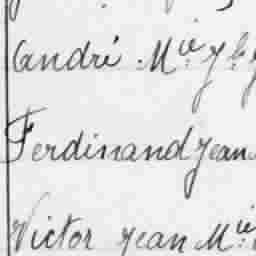 André Mie
Ferdinand Jean
Victor Jean Mie